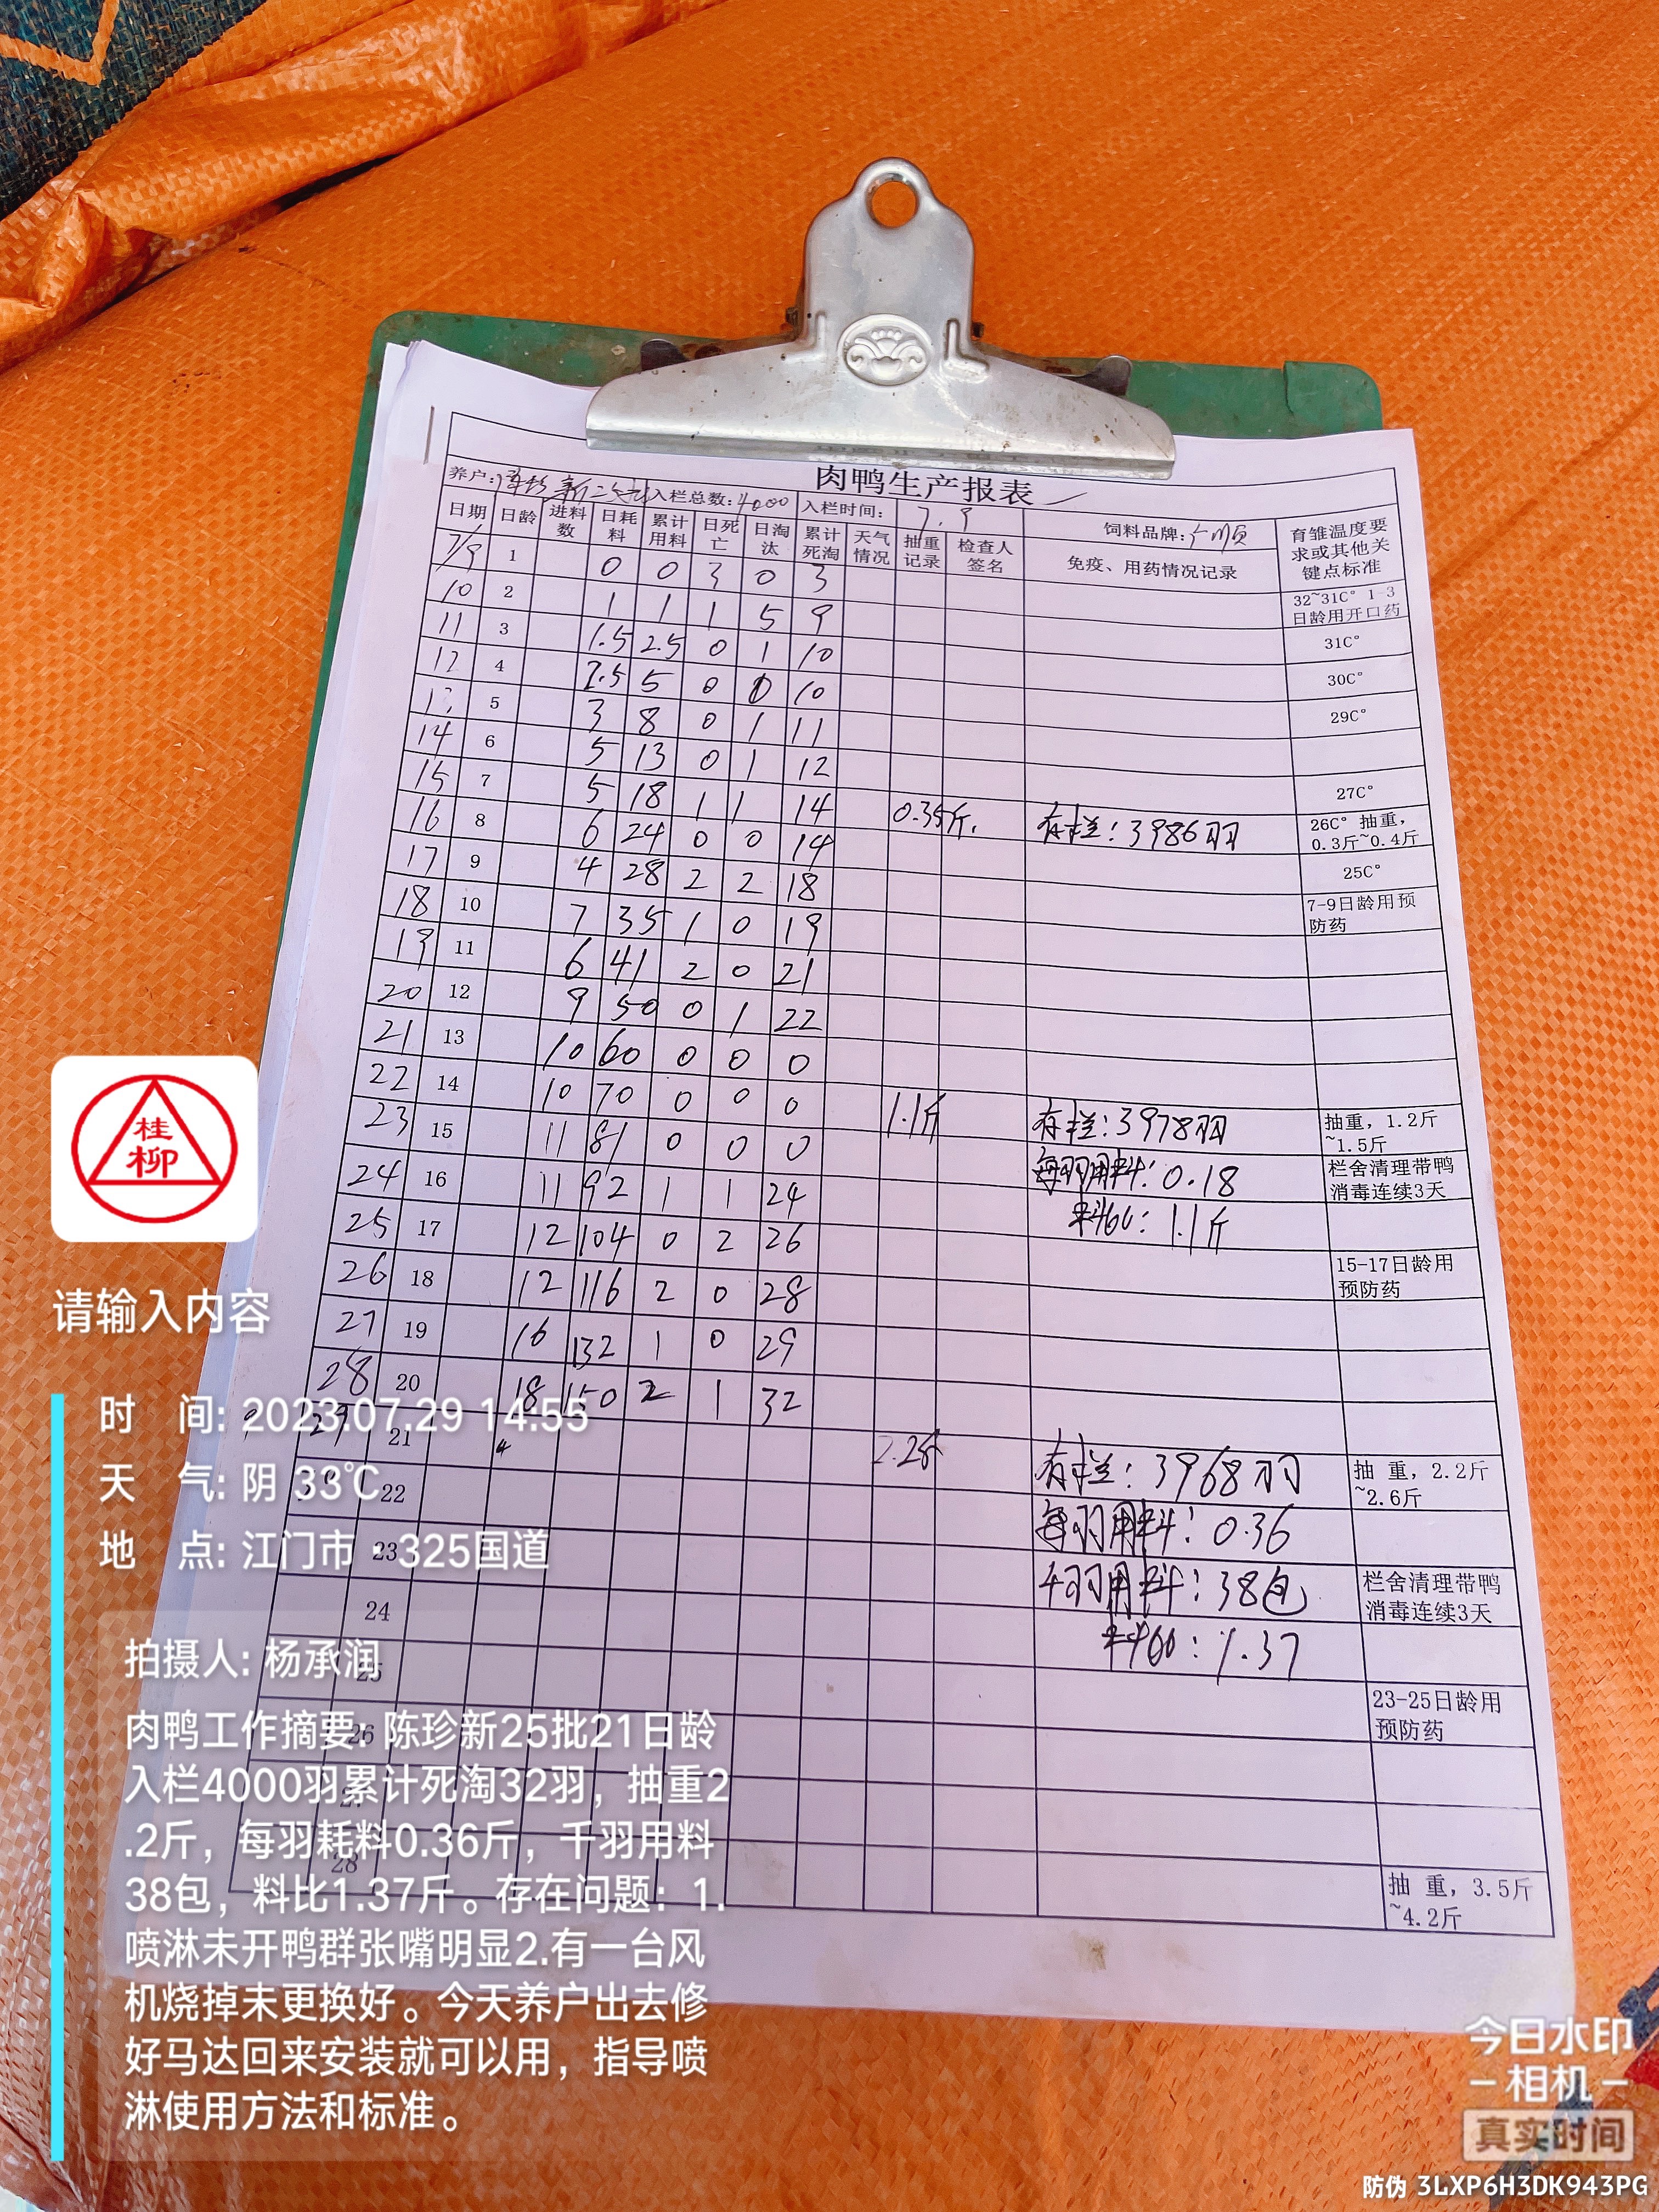 肉鸭生产报表
养户: 新二次 入栏总数: 4000 入栏时间: 7.9 饲料品牌: 育雏温度要求或其他关键点标准
日期 日龄 进料数 日耗料 累计用料 日死亡 日淘汰 累计死淘 天气情况 抽重记录 检查人签名 免疫、用药情况记录
7/9 1 0 0 3 0 3
10 2 1 1 1 5 9 32~31C° 1-3日龄用开口药
11 3 1.5 2.5 0 1 10 31C°
12 4 2.5 5 0 0 10 30C°
13 5 3 8 0 1 11 29C°
14 6 5 13 0 1 12
15 7 5 18 1 1 14 0.35斤. 存栏:3986羽 27C°
16 8 6 24 0 0 14 26C° 抽重,0.3斤~0.4斤
17 9 4 28 2 2 18 25C°
18 10 7 35 1 0 19 7-9日龄用预防药
19 11 6 41 2 0 21
20 12 9 50 0 1 22
21 13 10 60 0 0 0
22 14 10 70 0 0 0 1.1斤 存栏:3978羽 抽重,1.2斤~1.5斤
23 15 11 81 0 0 0 每羽用料:0.18 栏舍清理带鸭消毒连续3天
24 16 11 92 1 1 24 料比:1.1斤
25 17 12 104 0 2 26 15-17日龄用预防药
26 18 12 116 2 0 28
27 19 16 132 1 0 29
28 20 18 150 2 1 32
29 21 2.2斤 存栏:3968羽 抽 重,2.2斤~2.6斤
22 每羽用料:0.36
23 千羽用料:38包 栏舍清理带鸭消毒连续3天
24 料比:1.37
25 23-25日龄用预防药
26
28 抽 重,3.5斤~4.2斤
桂
柳
请输入内容
时 间: 2023.07.29 14:55
天 气: 阴 33℃
地 点: 江门市·325国道
拍摄人: 杨承润
肉鸭工作摘要: 陈珍新25批21日龄
入栏4000羽累计死淘32羽，抽重2
.2斤，每羽耗料0.36斤，千羽用料
38包，料比1.37斤。存在问题：1.
喷淋未开鸭群张嘴明显2.有一台风
机烧掉未更换好。今天养户出去修
好马达回来安装就可以用，指导喷
淋使用方法和标准。
今日水印
相机
真实时间
防伪 3LXP6H3DK943PG